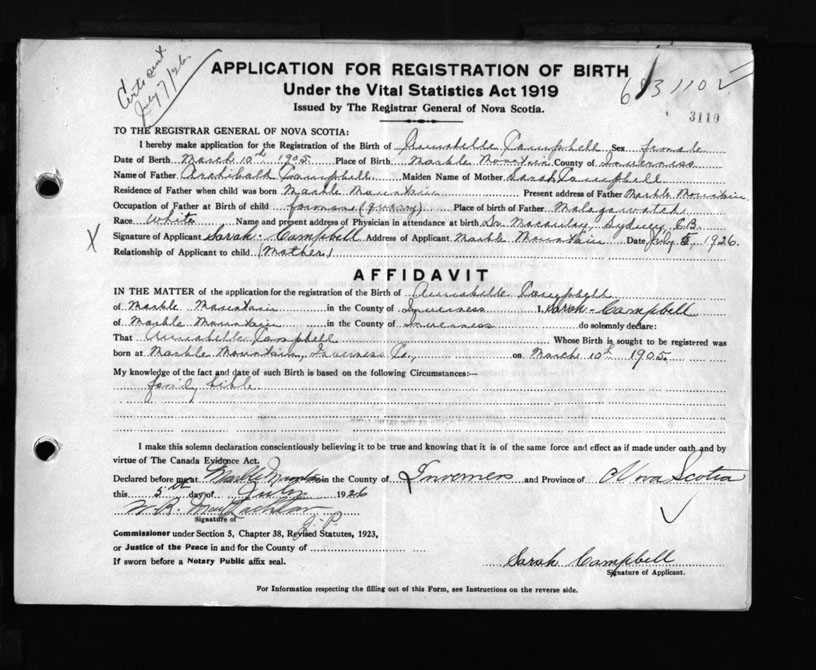 Certs sent
July 7/26
APPLICATION FOR REGISTRATION OF BIRTH
Under the Vital Statistics Act 1919
Issued by The Registrar General of Nova Scotia.
3119
TO THE REGISTRAR GENERAL OF NOVA SCOTIA:
I hereby make application for the Registration of the Birth of Annabelle Campbell Sex female
Date of Birth March 10th 1905. Place of Birth Marble Mountain County of Inverness
Name of Father Archibald Campbell Maiden Name of Mother Sarah Campbell
Residence of Father when child was born Marble Mountain Present address of Father Marble Mountain
Occupation of Father at Birth of child foreman (quarry) Place of birth of Father Malagawatch
Race White Name and present address of Physician in attendance at birth Dr. Macaulay, Sydney, C.B.
X Signature of Applicant Sarah Campbell Address of Applicant Marble Mountain Date July 5, 1926.
Relationship of Applicant to child (Mother)
AFFIDAVIT
IN THE MATTER of the application for the registration of the Birth of Annabelle Campbell
of Marble Mountain in the County of Inverness I, Sarah Campbell
of Marble Mountain in the County of Inverness do solemnly declare:
That Annabelle Campbell Whose Birth is sought to be registered was
born at Marble Mountain, Inverness Co., on March 10th 1905.
My knowledge of the fact and date of such Birth is based on the following Circumstances:—
family bible
I make this solemn declaration conscientiously believing it to be true and knowing that it is of the same force and effect as if made under oath and by
virtue of The Canada Evidence Act.
Declared before me at Marble Mountain in the County of Inverness and Province of Nova Scotia
this 5th day of July 1926
Signature of J.P.
Commissioner under Section 5, Chapter 38, Revised Statutes, 1923,
or Justice of the Peace in and for the County of
If sworn before a Notary Public affix seal.
Sarah Campbell
Signature of Applicant.
For Information respecting the filling out of this Form, see Instructions on the reverse side.